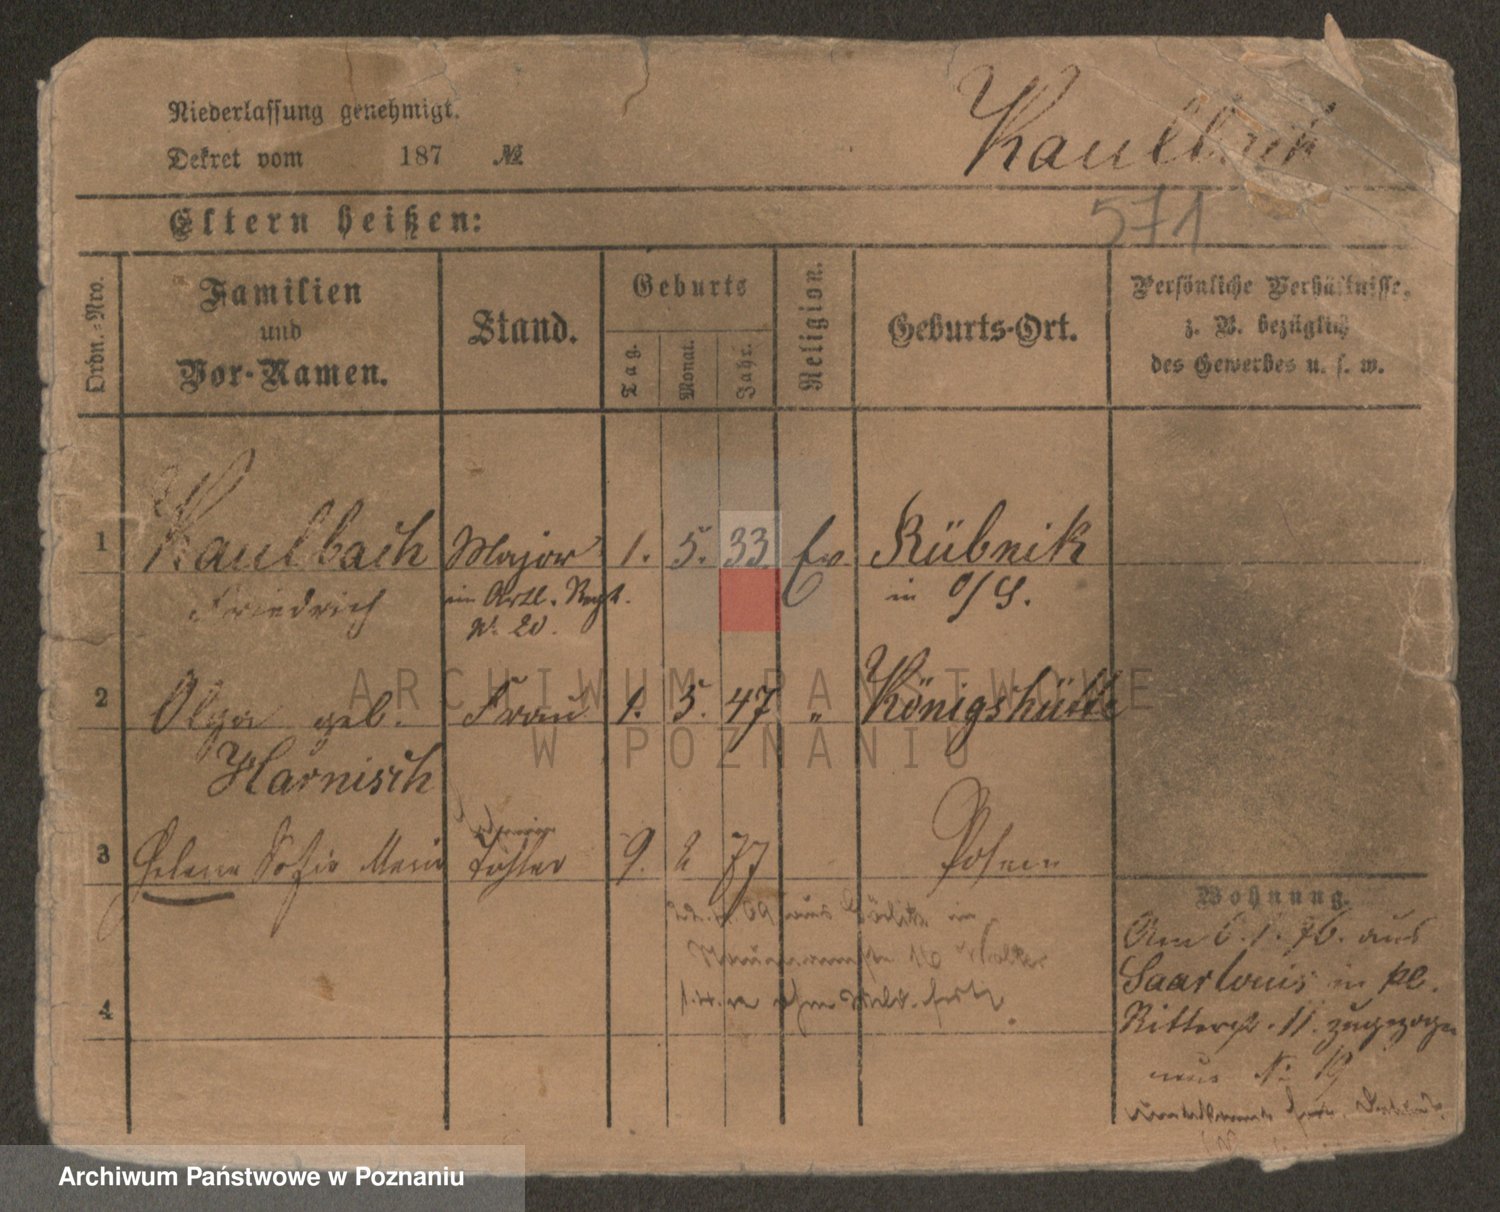 Niederlassung genehmigt.
Dekret vom 187 №
571
Eltern heißen:
Ordn.-Nro.
Familien
und
Vor-Namen.
Stand.
Geburts
Tag.
Monat.
Jahr.
Religion.
Geburts-Ort.
Persönliche Verhältnisse,
z. B. bezüglich
des Gewerbes u. s. w.
1 Kaulbach Major 1. 5. 33 Ev Rübnik
Friedrich im Artl. Regt. in O/S.
N. 20.
2 Olga geb. Frau 1. 5. 47 " Königshütte
Harnisch
3 Helene Sofie Marie Tochter 9. 2 77 Posen
4
Wohnung.
Am 6. 1. 76. aus
Saarlouis in kl.
Ritterst. 11. zugezogen
ARCHIWUM PAŃSTWOWE
W POZNANIU
Archiwum Państwowe w Poznaniu